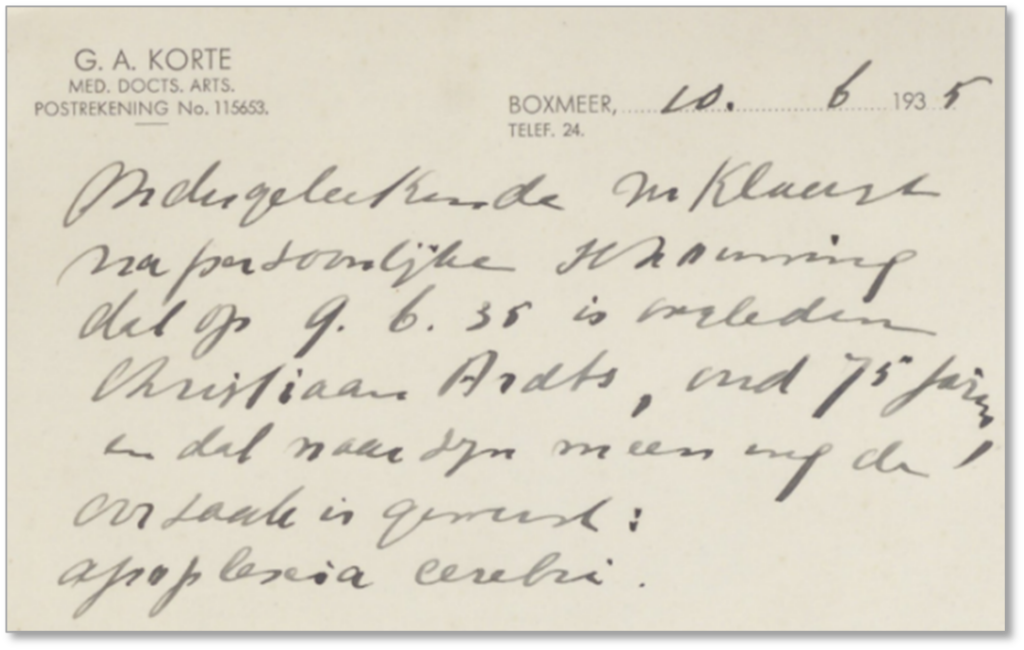 G. A. KORTE
MED. DOCTS. ARTS.
POSTREKENING No. 115653.
BOXMEER, 10. 6 1935
TELEF. 24.
Ondergeteekende verklaart
na persoonlijke schouwing
dat op 9. 6. 35 is overleden
Christiaan Ardts, oud 75 jaar,
en dat naar zijn meening de
oorzaak is geweest:
apoplexia cerebri.